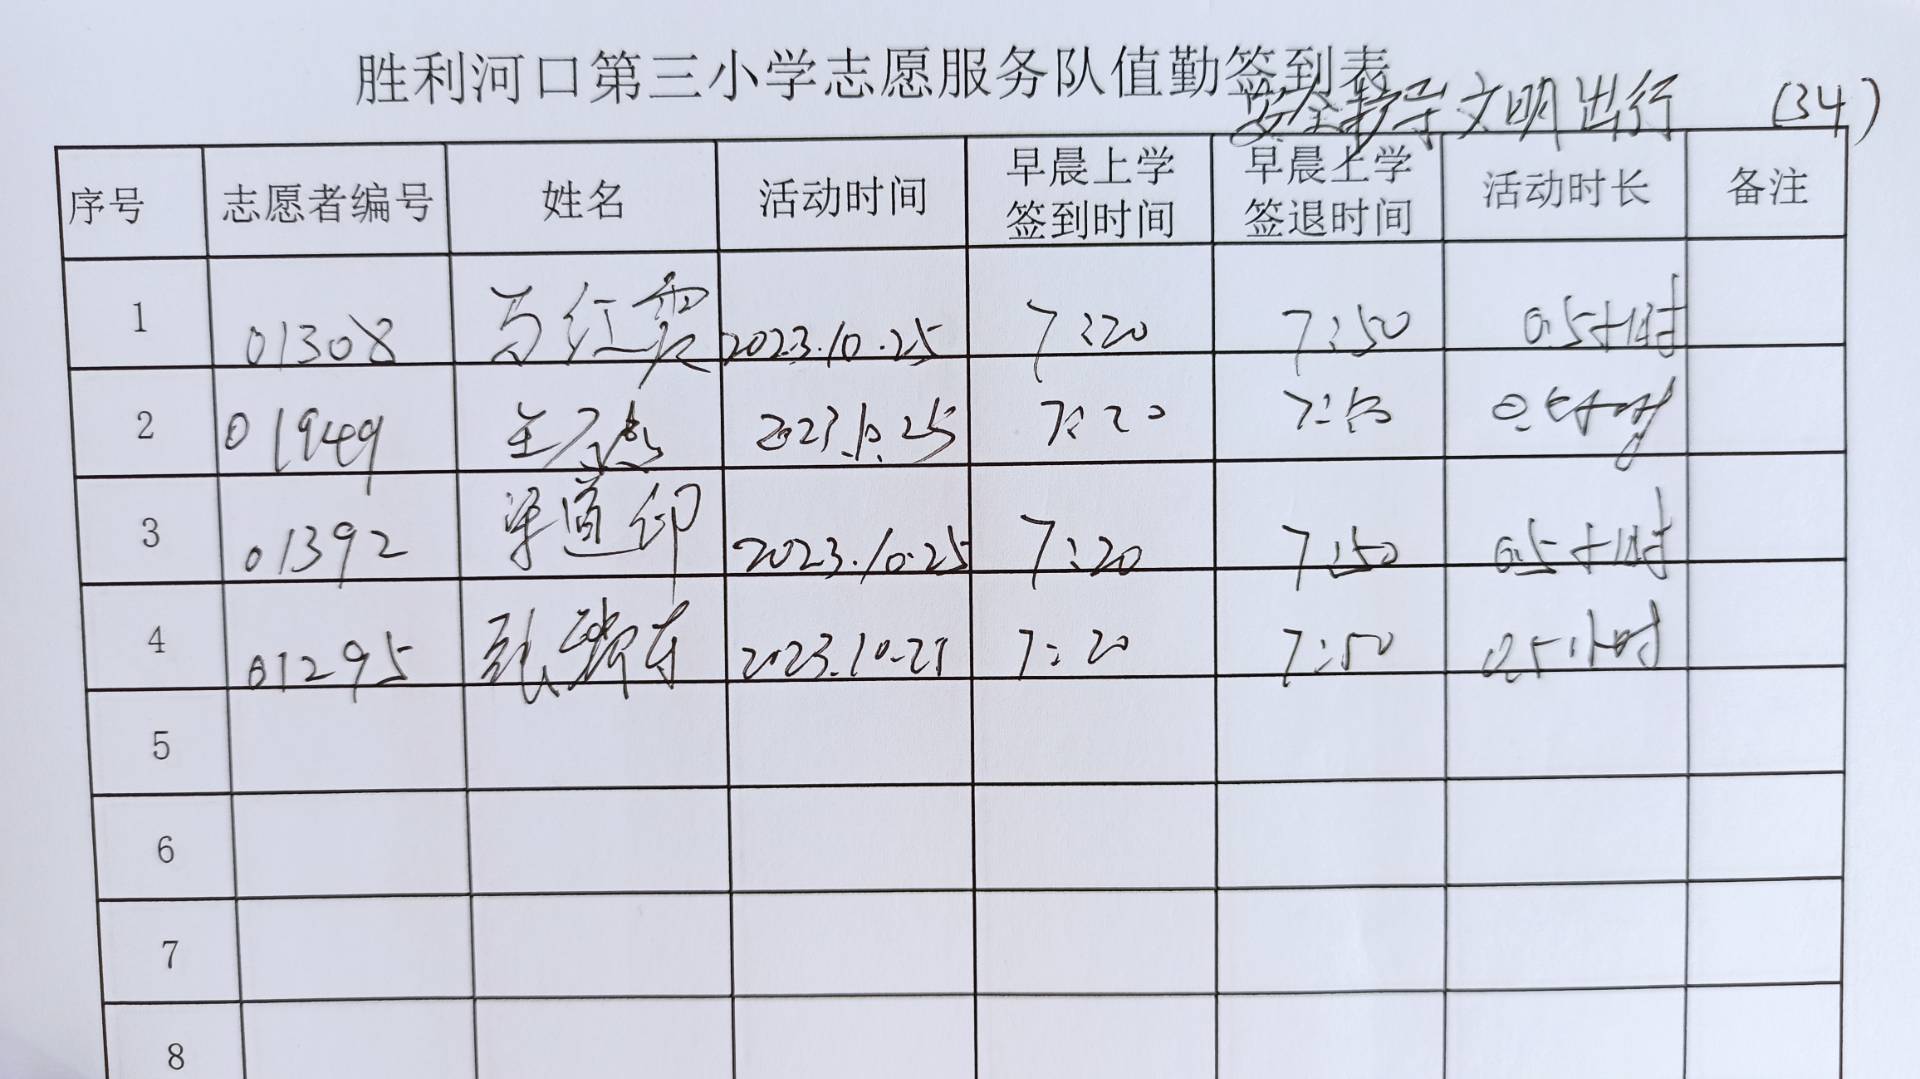 胜利河口第三小学志愿服务队值勤签到表
安全护学文明出行 (34)
序号 志愿者编号 姓名 活动时间 早晨上学签到时间 早晨上学签退时间 活动时长 备注
1 01308 马红霞 2023.10.25 7:20 7:50 0.5小时
2 01949 2023.10.25 7:20 7:50 0.5小时
3 01392 道印 2023.10.25 7:20 7:50 0.5小时
4 01295 张 2023.10.25 7:20 7:50 0.5小时
5
6
7
8